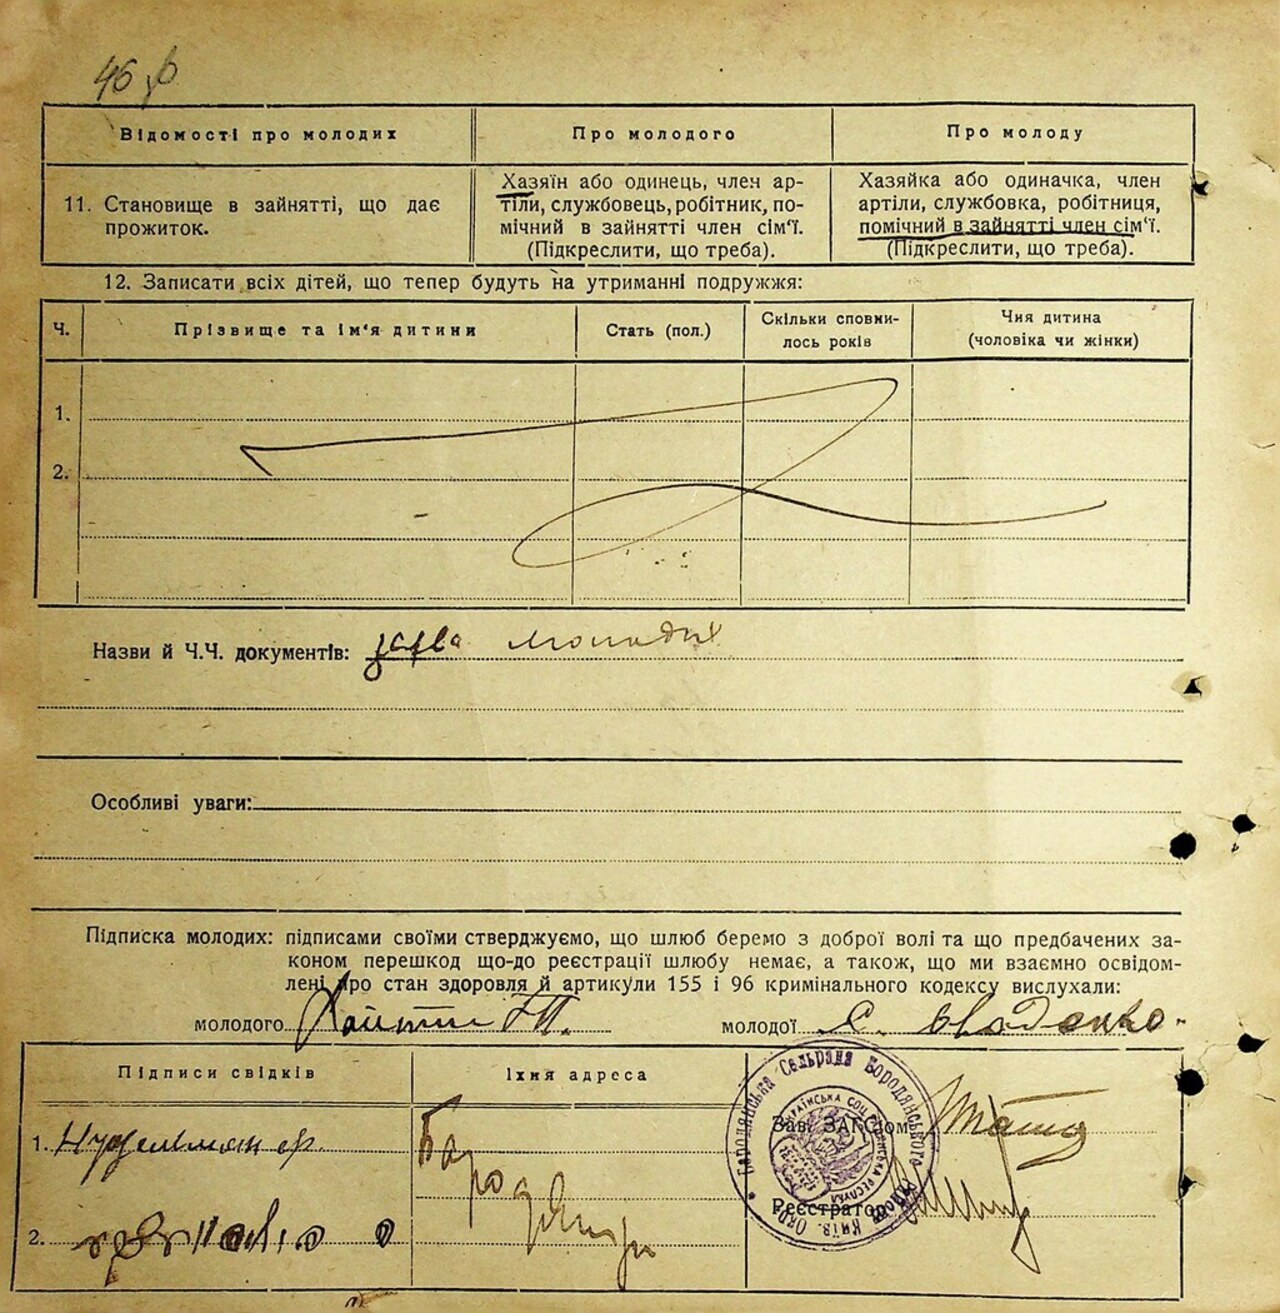 46
Відомості про молодих
Про молодого
Про молоду
11. Становище в зайнятті, що дає
прожиток.
Хазяїн або одинець, член ар-
тіли, службовець, робітник, по-
мічний в зайнятті член сім'ї.
(Підкреслити, що треба).
Хазяйка або одиначка, член
артіли, службовка, робітниця,
помічний в зайнятті член сім'ї.
(Підкреслити, що треба).
12. Записати всіх дітей, що тепер будуть на утриманні подружжя:
Ч.
Прізвище та ім'я дитини
Стать (пол.)
Скільки сповни-
лось років
Чия дитина
(чоловіка чи жінки)
1.
2.
Назви й Ч.Ч. документів: заява молодих
Особливі уваги:
Підписка молодих: підписами своїми стверджуємо, що шлюб беремо з доброї волі та що предбачених за-
коном перешкод що-до реєстрації шлюбу немає, а також, що ми взаємно освідом-
лені про стан здоровля й артикули 155 і 96 кримінального кодексу вислухали:
молодого
молодої
Підписи свідків
Їхня адреса
1.
2.
Бородянка
Бородянська Сельрада Бородянського
Зав. ЗАГС'ом
Реєстратор